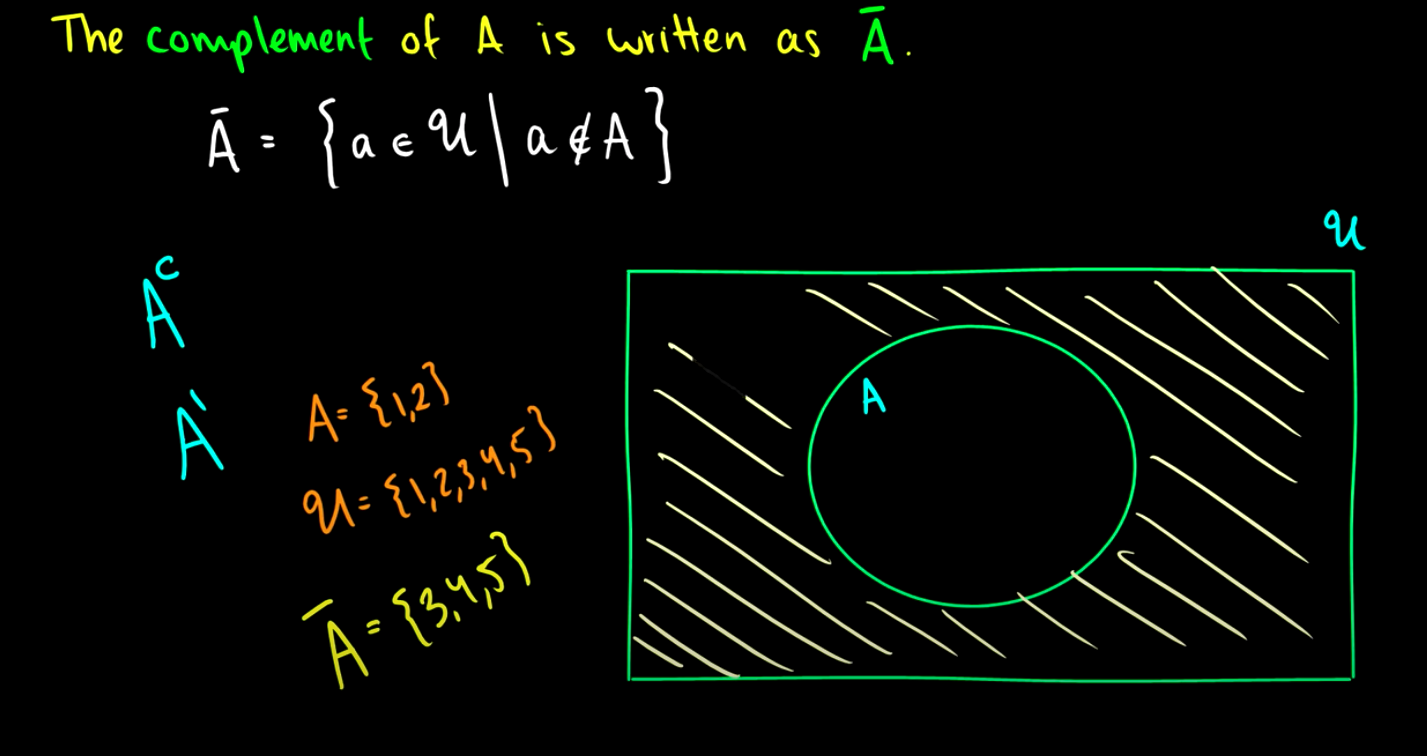 The complement of A is written as Ā.
Ā = {a ∈ 𝒰 | a ∉ A}
𝒰
Aᶜ
A'
A
A = {1,2}
𝒰 = {1,2,3,4,5}
Ā = {3,4,5}